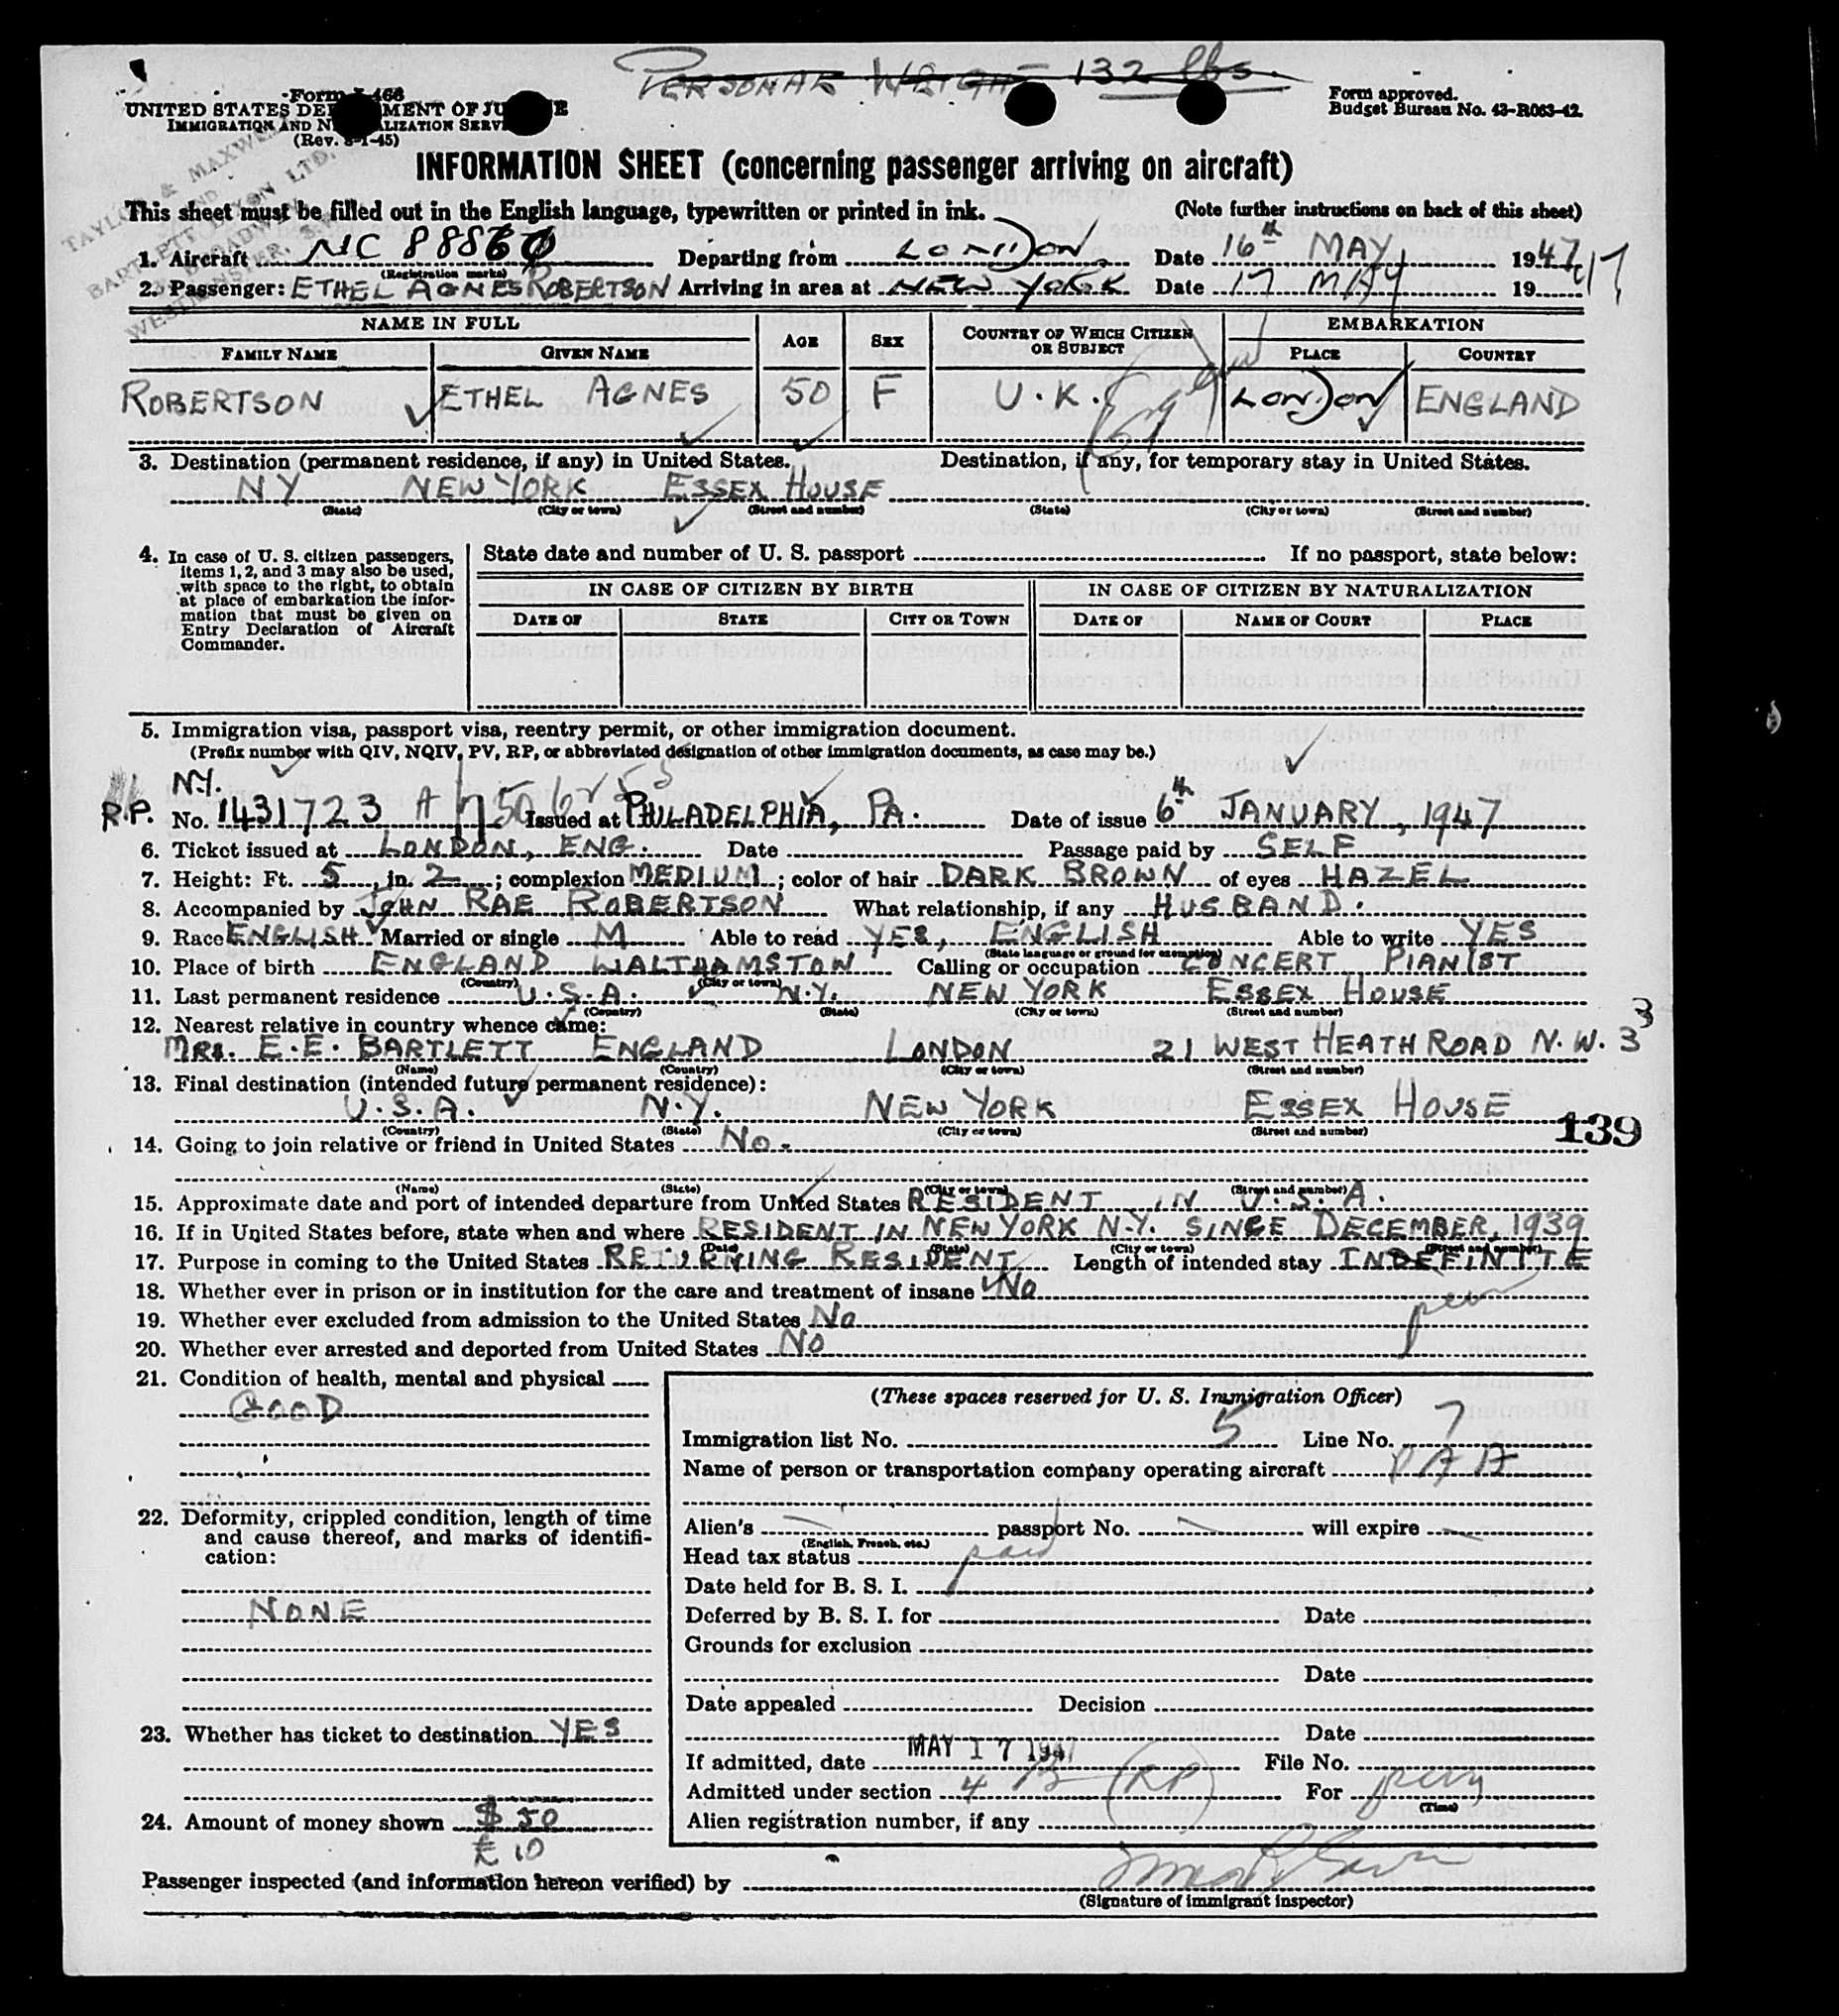 PERSONAL WEIGHT – 132 lbs.
Form I-466
UNITED STATES DEPARTMENT OF JUSTICE
IMMIGRATION AND NATURALIZATION SERVICE
(Rev. 8-1-45)
Form approved.
Budget Bureau No. 43-R063-42.
TAYLOR & MAXWELL
AND
LTD.
BROADWAY
WESTMINSTER, S.W.
INFORMATION SHEET (concerning passenger arriving on aircraft)
This sheet must be filled out in the English language, typewritten or printed in ink. (Note further instructions on back of this sheet)
1. Aircraft NC 88860 Departing from LONDON Date 16th MAY 1947
(Registration marks)
2. Passenger: ETHEL AGNES ROBERTSON Arriving in area at NEW YORK Date 17 MAY 19 47
NAME IN FULL AGE SEX COUNTRY OF WHICH CITIZEN OR SUBJECT EMBARKATION
FAMILY NAME GIVEN NAME PLACE COUNTRY
ROBERTSON ETHEL AGNES 50 F U.K. LONDON ENGLAND
3. Destination (permanent residence, if any) in United States. Destination, if any, for temporary stay in United States.
NY NEW YORK ESSEX HOUSE
(State) (City or town) (Street and number) (State) (City or town) (Street and number)
4. In case of U. S. citizen passengers, items 1, 2, and 3 may also be used, with space to the right, to obtain at place of embarkation the information that must be given on Entry Declaration of Aircraft Commander.
State date and number of U. S. passport If no passport, state below:
IN CASE OF CITIZEN BY BIRTH IN CASE OF CITIZEN BY NATURALIZATION
DATE OF STATE CITY OR TOWN DATE OF NAME OF COURT PLACE
5. Immigration visa, passport visa, reentry permit, or other immigration document.
(Prefix number with QIV, NQIV, PV, RP, or abbreviated designation of other immigration documents, as case may be.)
N.Y.
R.P. No. 1431723 Issued at PHILADELPHIA, PA. Date of issue 6th JANUARY, 1947
6. Ticket issued at LONDON, ENG. Date Passage paid by SELF
7. Height: Ft. 5, in. 2; complexion MEDIUM; color of hair DARK BROWN of eyes HAZEL
8. Accompanied by JOHN RAE ROBERTSON What relationship, if any HUSBAND.
9. Race ENGLISH Married or single M Able to read YES, ENGLISH Able to write YES
(State language or ground for exemption)
10. Place of birth ENGLAND WALTHAMSTOW Calling or occupation CONCERT PIANIST
(Country) (City or town)
11. Last permanent residence U.S.A. N.Y. NEW YORK ESSEX HOUSE
(Country) (State) (City or town) (Street and number)
12. Nearest relative in country whence came:
MRS. E.E. BARTLETT ENGLAND LONDON 21 WEST HEATH ROAD N.W. 3
3
(Name) (Country) (City or town) (Street and number)
13. Final destination (intended future permanent residence):
U.S.A. N.Y. NEW YORK ESSEX HOUSE
(Country) (State) (City or town) (Street and number)
139
14. Going to join relative or friend in United States No.
(Name) (State) (City or town) (Street and number)
15. Approximate date and port of intended departure from United States RESIDENT IN U.S.A.
16. If in United States before, state when and where RESIDENT IN NEW YORK N.Y. SINCE DECEMBER, 1939
(Date) (State) (City or town) (Street and number)
17. Purpose in coming to the United States RETURNING RESIDENT Length of intended stay INDEFINITE
18. Whether ever in prison or in institution for the care and treatment of insane No
19. Whether ever excluded from admission to the United States No
20. Whether ever arrested and deported from United States No
21. Condition of health, mental and physical
GOOD
22. Deformity, crippled condition, length of time and cause thereof, and marks of identification:
NONE
23. Whether has ticket to destination YES
24. Amount of money shown $ 50
£ 10
(These spaces reserved for U. S. Immigration Officer)
Immigration list No. 5 Line No. 7
Name of person or transportation company operating aircraft PAA
Alien's passport No. will expire
(English, French, etc.)
Head tax status paid
Date held for B. S. I.
Deferred by B. S. I. for Date
Grounds for exclusion
Date
Date appealed Decision
Date
If admitted, date MAY 17 1947 File No.
Admitted under section 4 B (RP) For perm
(Time)
Alien registration number, if any
Passenger inspected (and information hereon verified) by
(Signature of immigrant inspector)